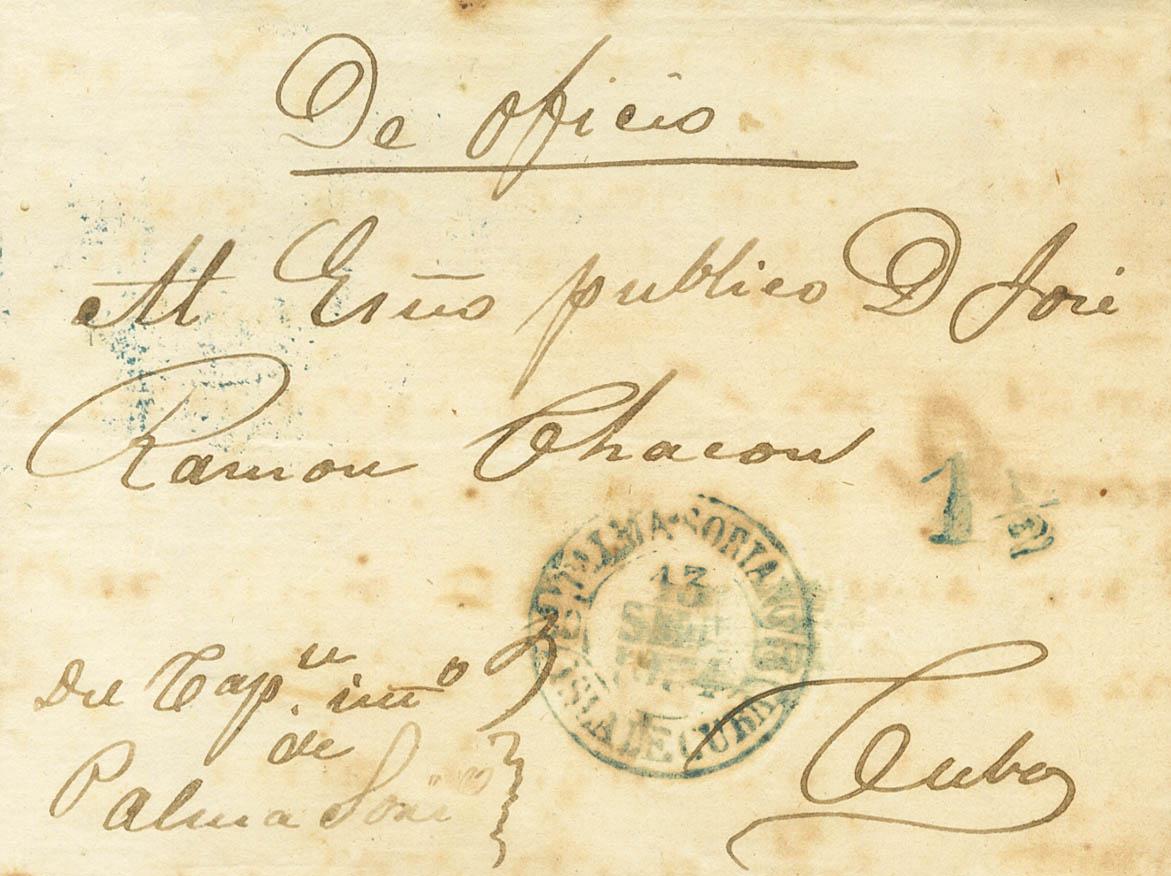 De oficio
Al Esno publico D José
Ramon Chacon
1 1/2
PALMA-SORIANO
13
SET
ISLA DE CUBA
Del Capn
de
Palma Sorino
Cuba